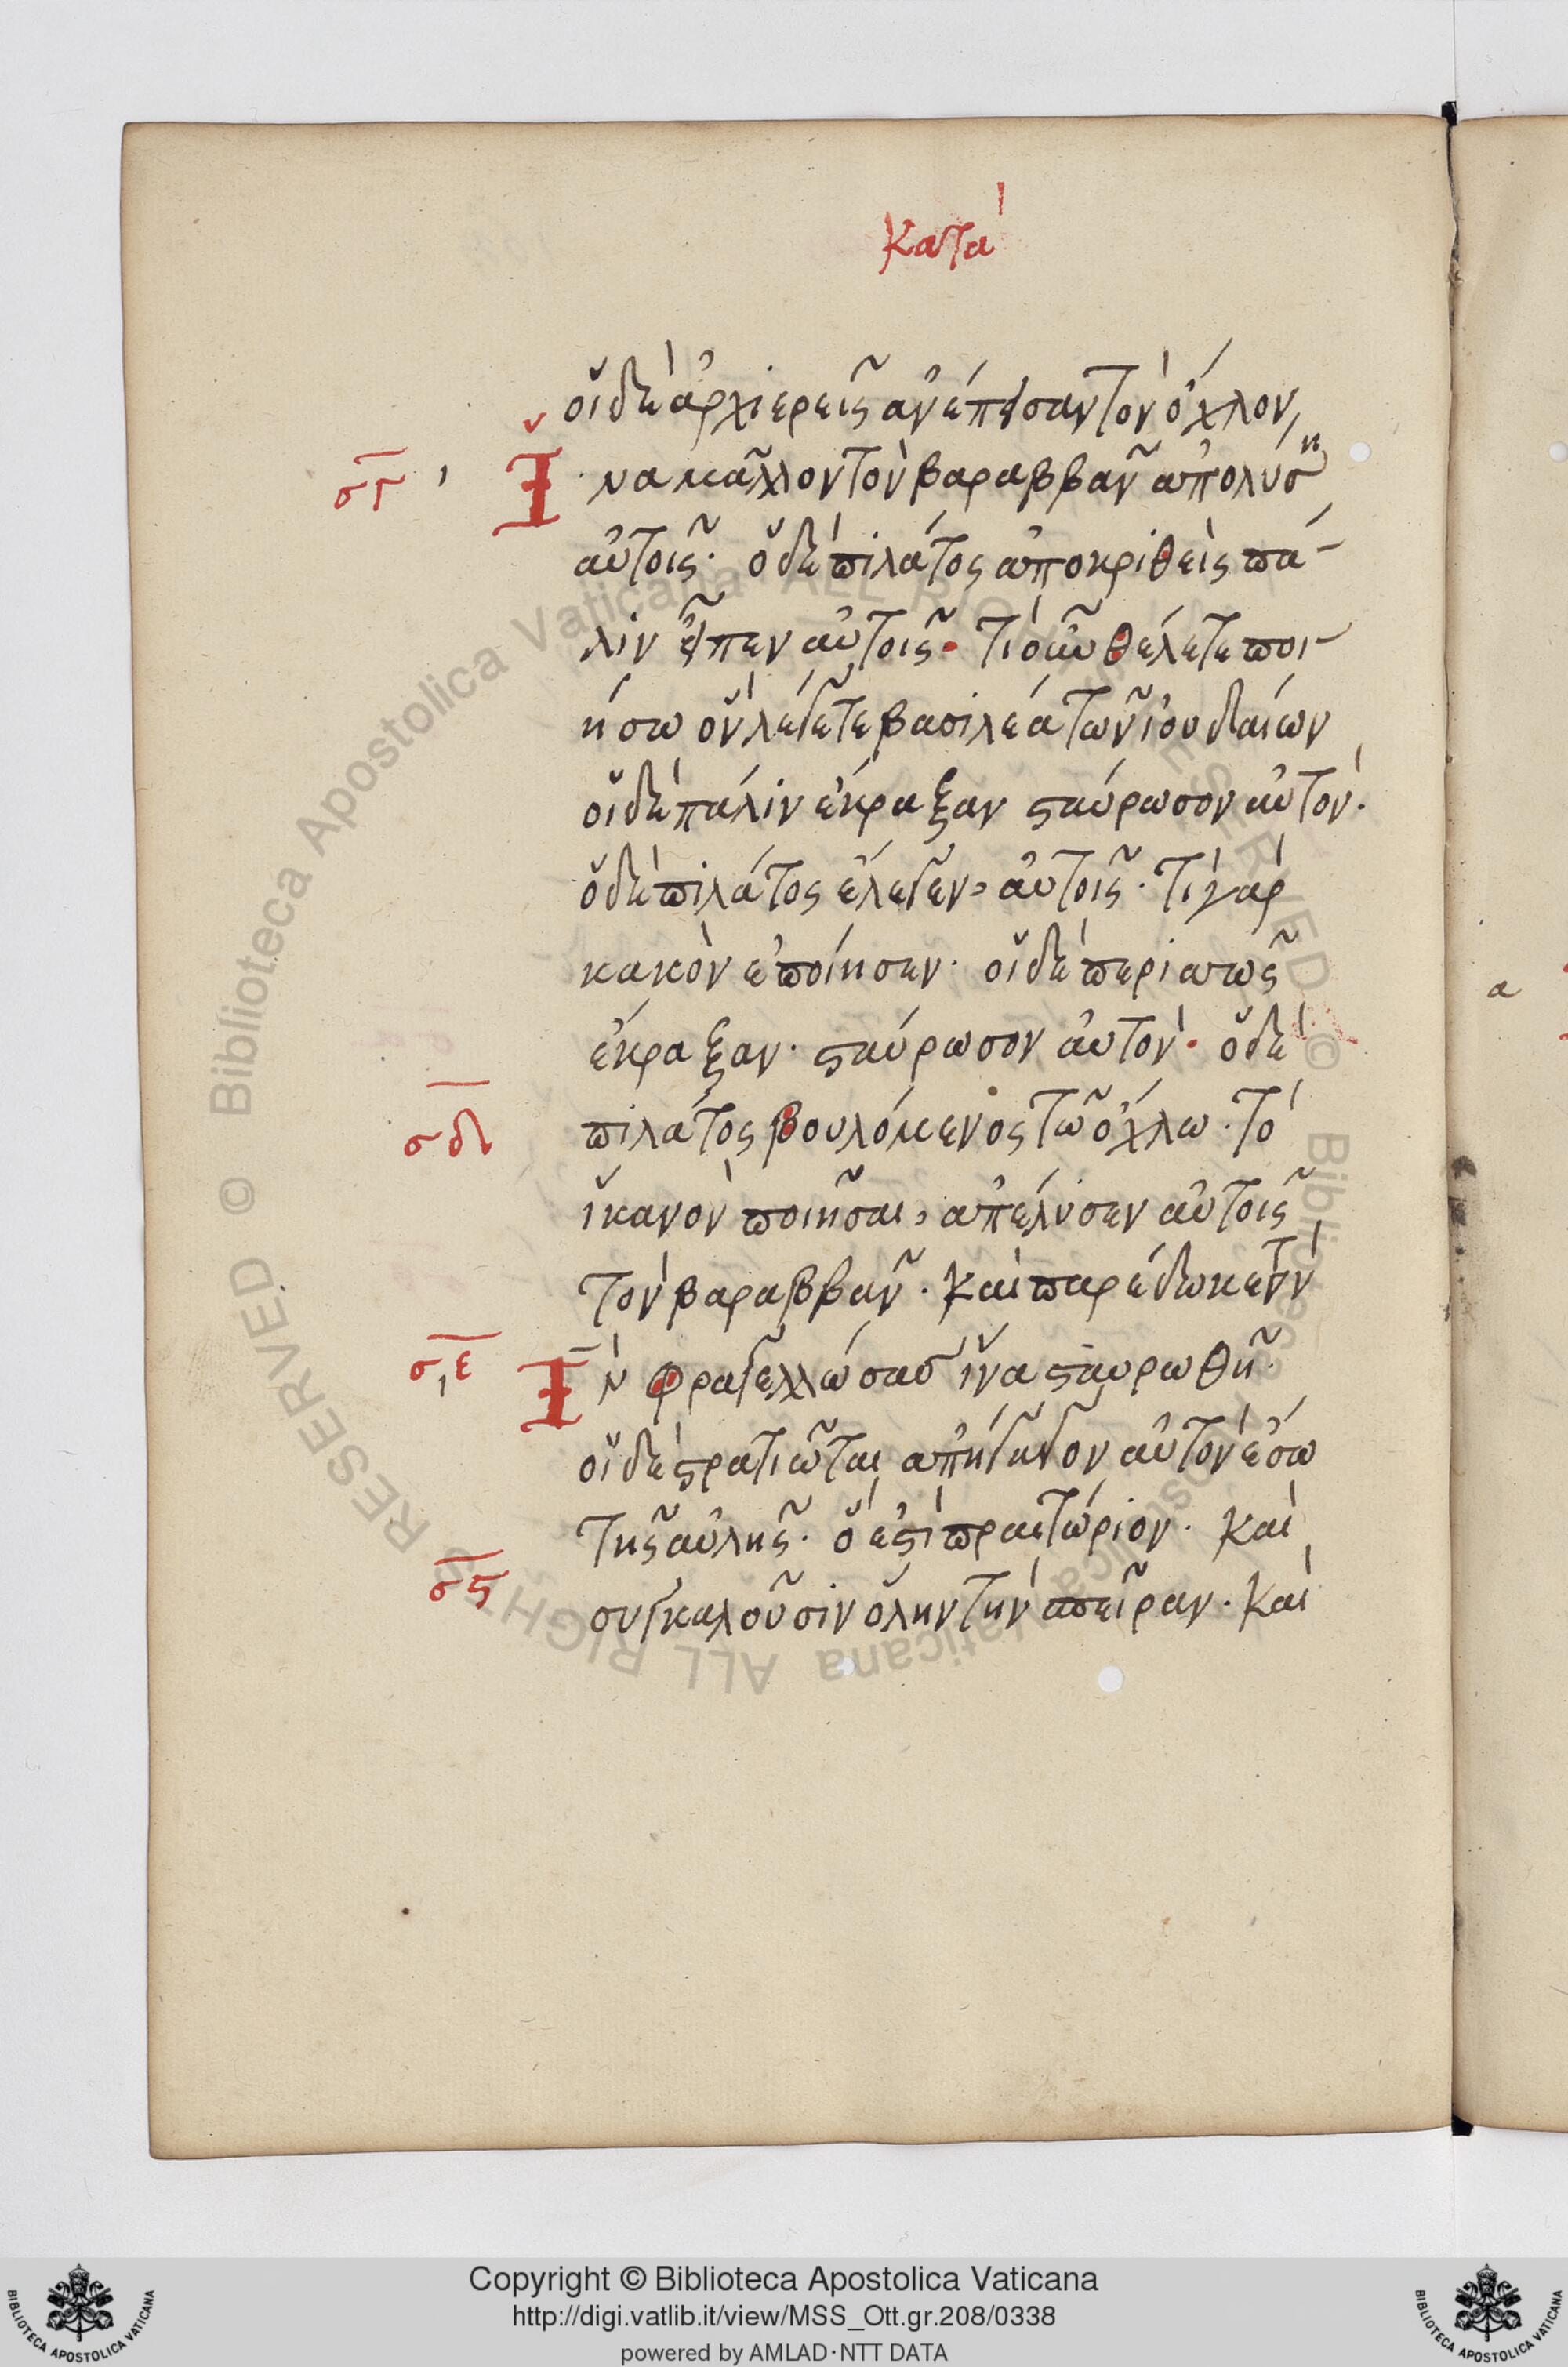 κατὰ
οἱ δὲ ἀρχιερεῖς ἀνέπεισαν τὸν ὄχλον,
σγ ἵνα μᾶλλον τὸν βαραββᾶν ἀπολύση
αὐτοῖς· ὁ δὲ πιλάτος ἀποκριθεὶς πά-
λιν εἶπεν αὐτοῖς· τί οὖν θέλετε ποι-
ήσω ὃν λέγετε βασιλέα τῶν ἰουδαίων
οἱ δὲ πάλιν ἔκραξαν ϛαύρωσον αὐτόν·
ὁ δὲ πιλάτος ἔλεγεν, αὐτοῖς· τί γὰρ
κακὸν ἐποίησεν· οἱ δὲ περισσῶς
ἔκραξαν· ϛαύρωσον αὐτόν· ὁ δὲ
σδ πιλάτος βουλόμενος τῶ ὄχλω· τὸ
ἱκανὸν ποιῆσαι, ἀπέλυσεν αὐτοῖς
τὸν βαραββᾶν· καὶ παρέδωκεν τὸν
σε ἰν φραγελλώσας ἵνα ϛαυρωθῆ·
οἱ δὲ ϛρατιῶται ἀπήγαγον αὐτὸν ἔσω
τῆς αὐλῆς· ὅ ἐϛι πραιτώριον· καὶ
σϛ συγκαλοῦσιν ὅλην τὴν σπεῖραν· καὶ
α
© Biblioteca Apostolica Vaticana ALL RIGHTS RESERVED
Copyright © Biblioteca Apostolica Vaticana
http://digi.vatlib.it/view/MSS_Ott.gr.208/0338
powered by AMLAD·NTT DATA
BIBLIOTECA APOSTOLICA VATICANA
BIBLIOTECA APOSTOLICA VATICANA